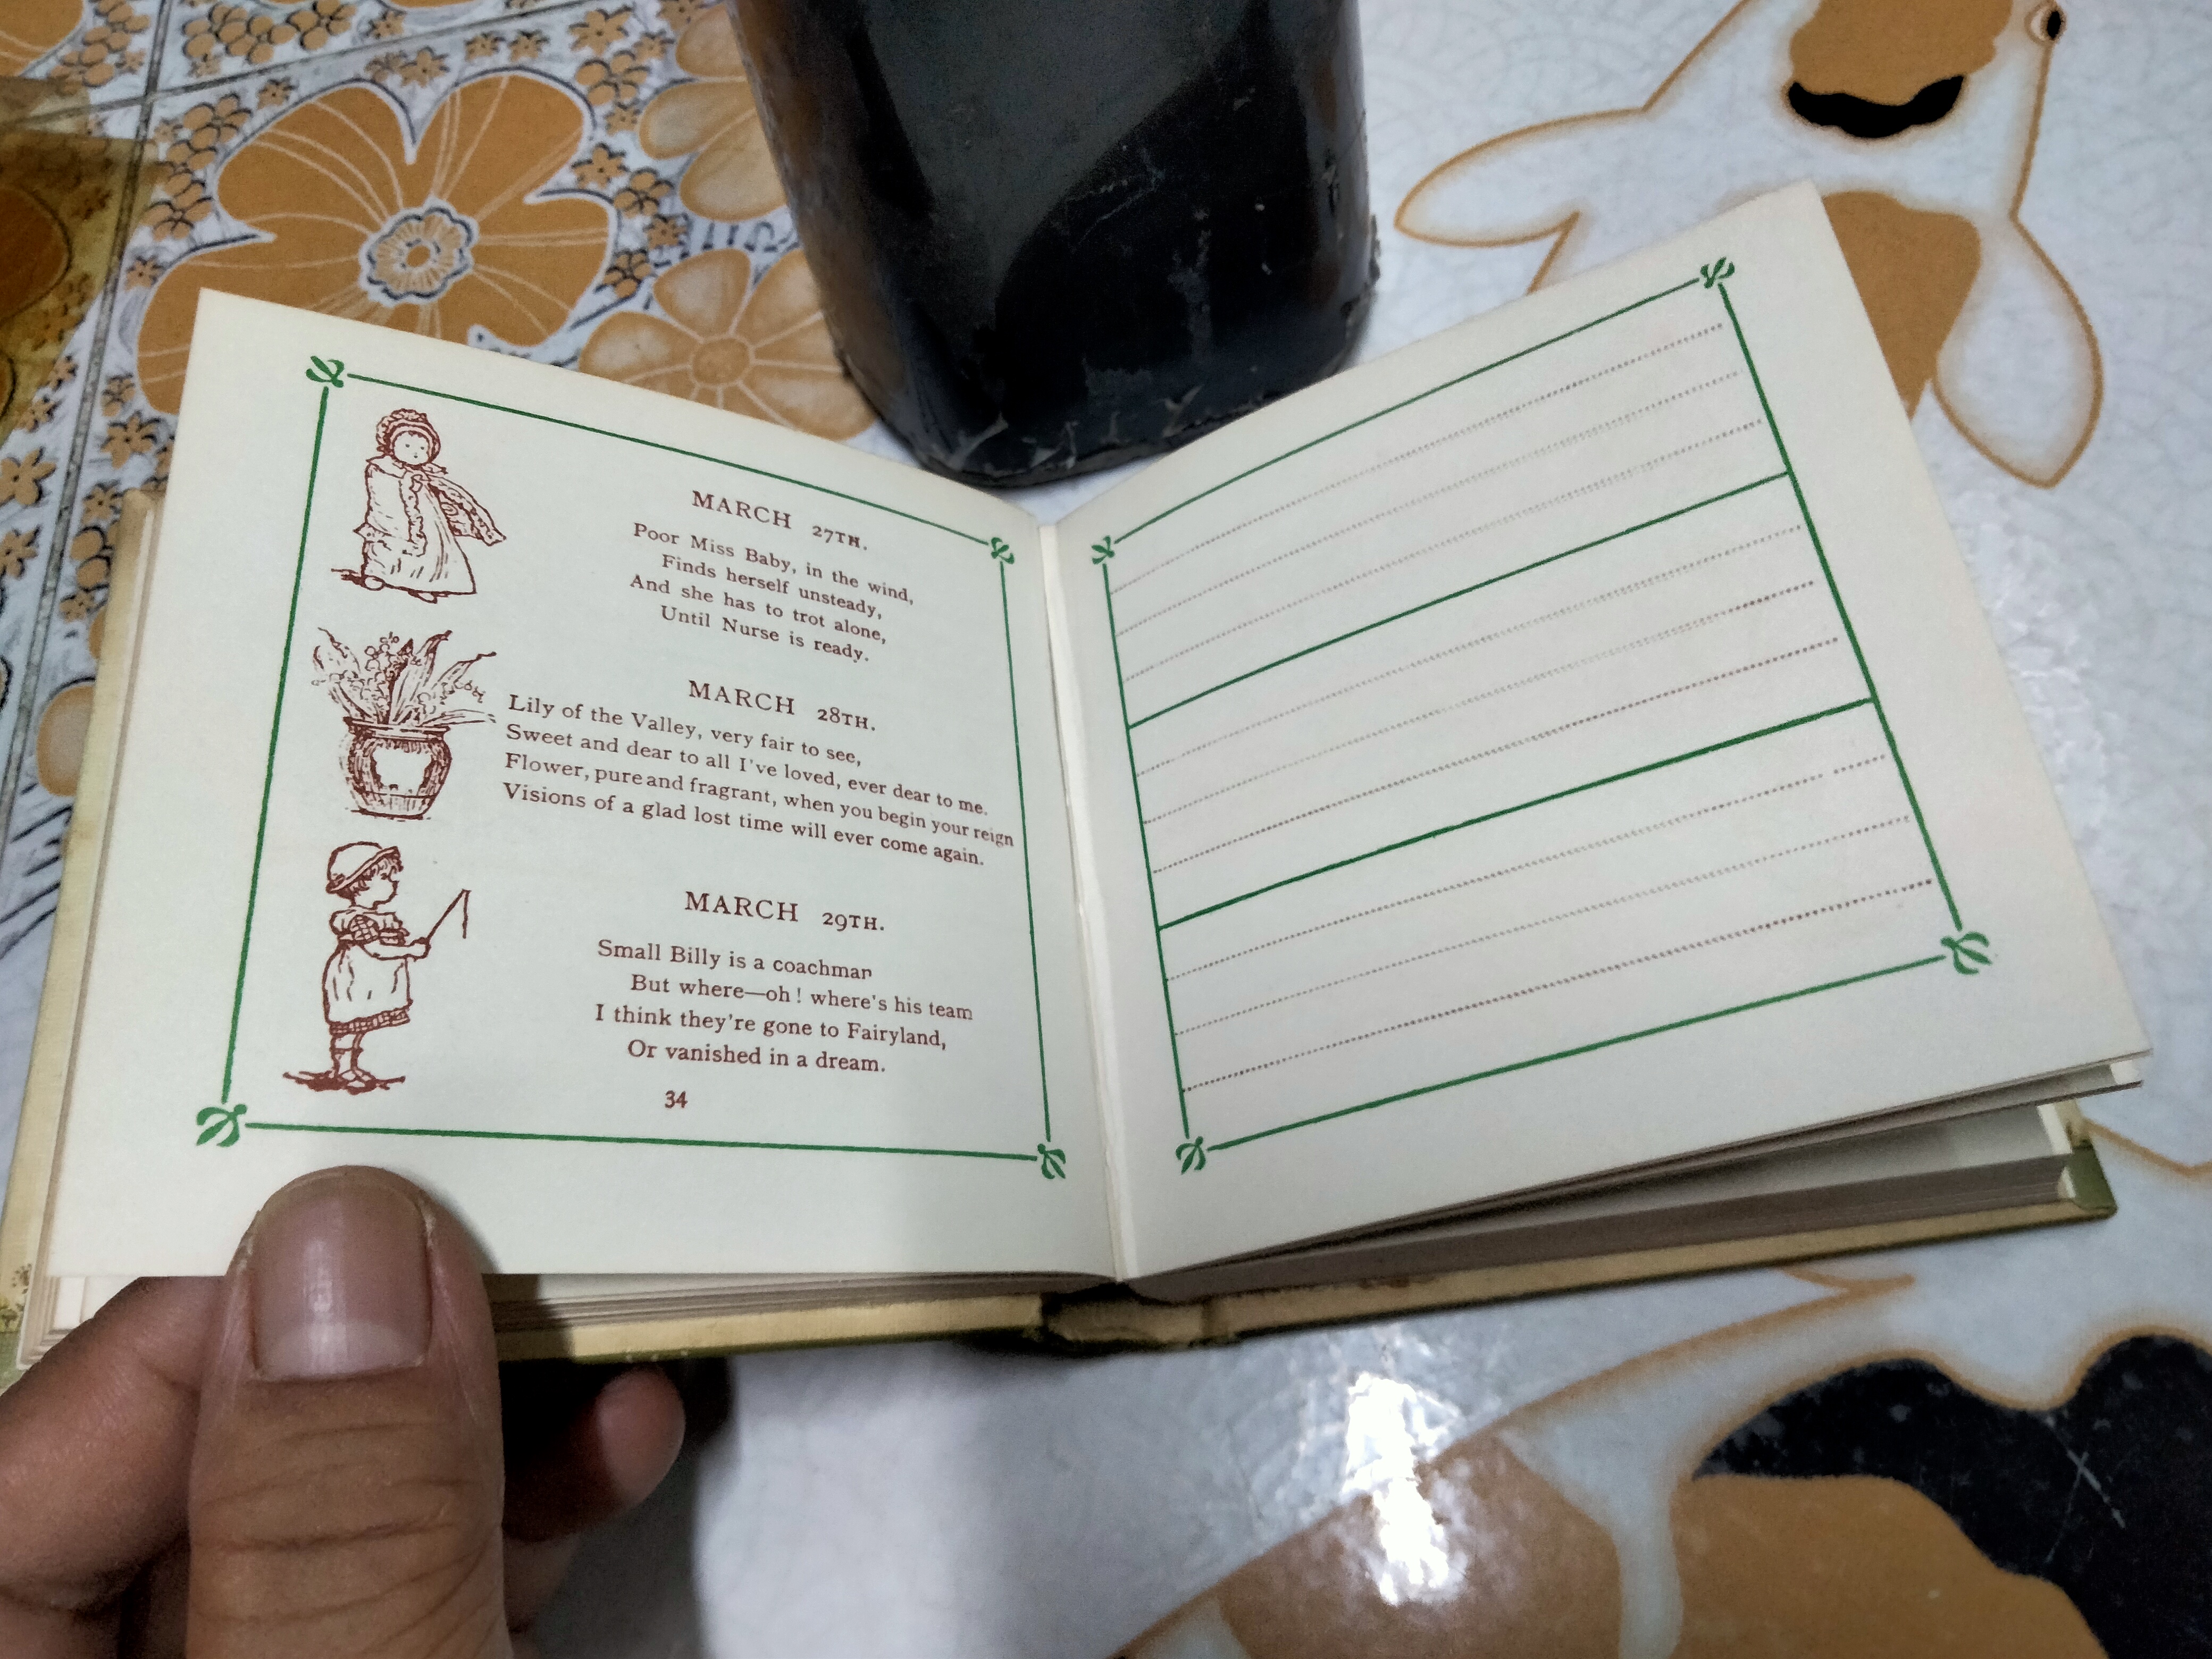 MARCH 27TH.
Poor Miss Baby, in the wind,
Finds herself unsteady,
And she has to trot alone,
Until Nurse is ready.
MARCH 28TH.
Lily of the Valley, very fair to see,
Sweet and dear to all I've loved, ever dear to me.
Flower, pure and fragrant, when you begin your reign
Visions of a glad lost time will ever come again.
MARCH 29TH.
Small Billy is a coachman
But where—oh! where's his team
I think they're gone to Fairyland,
Or vanished in a dream.
34